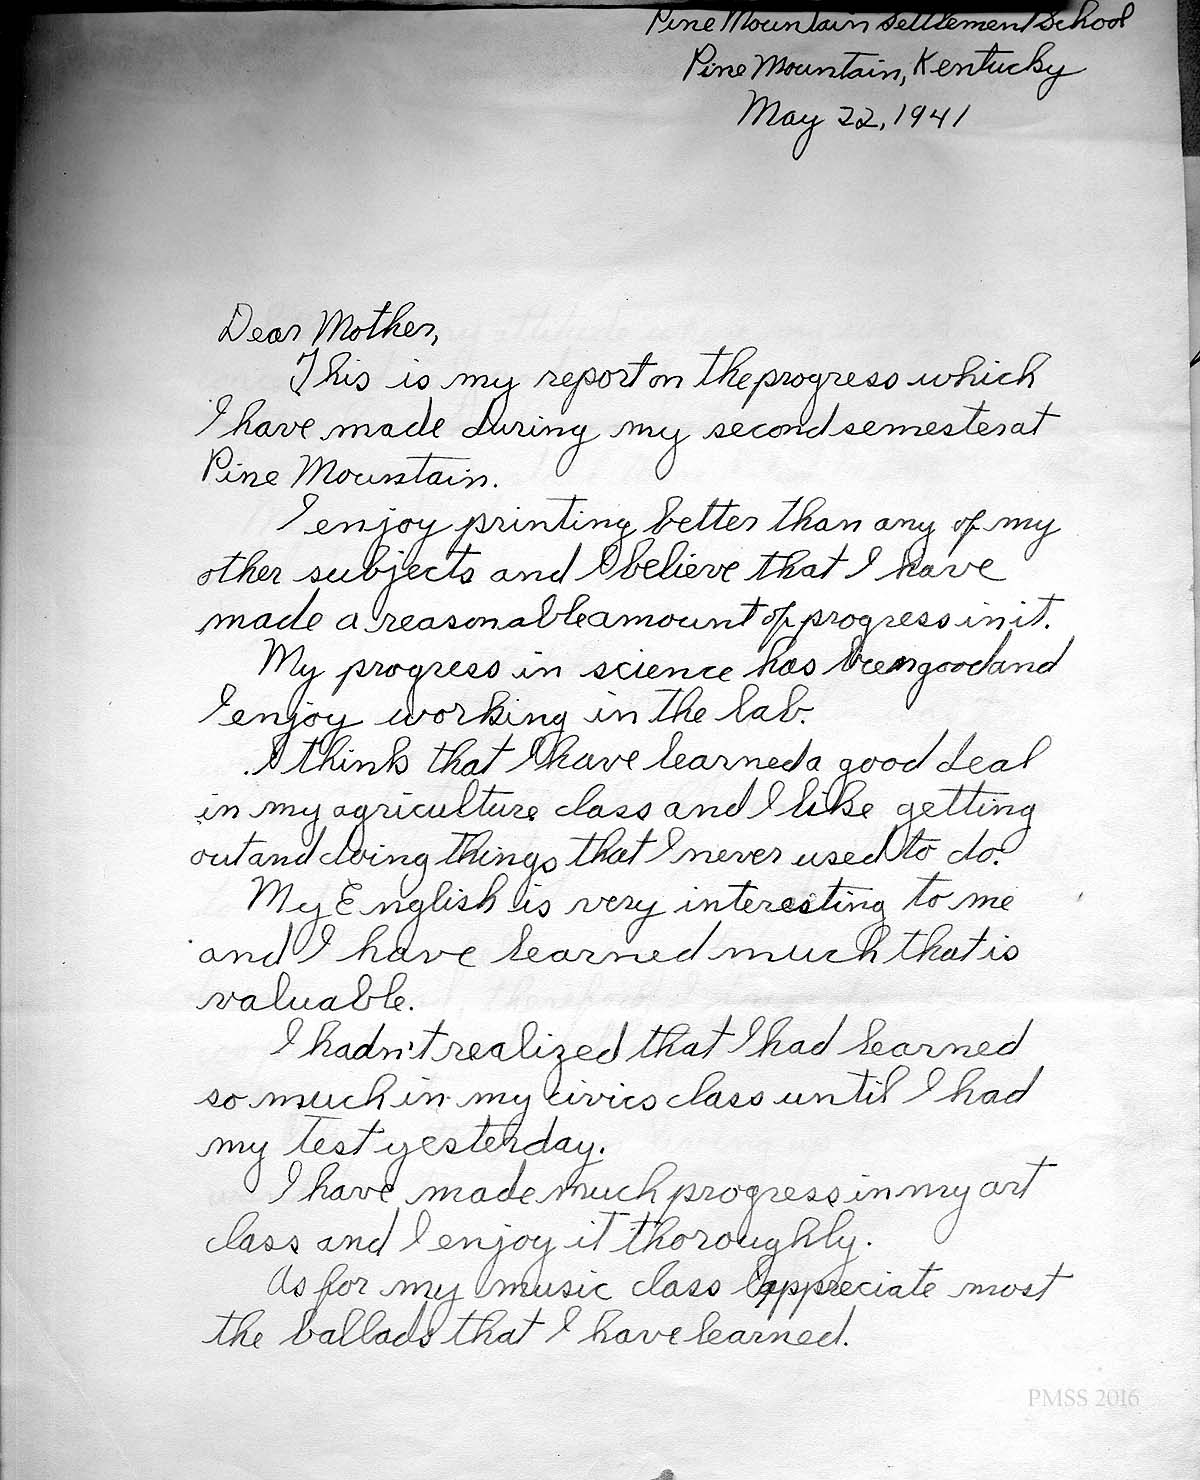 Pine Mountain Settlement School
Pine Mountain, Kentucky
May 22, 1941
Dear Mother,
This is my report on the progress which
I have made during my second semester at
Pine Mountain.
I enjoy printing better than any of my
other subjects and I believe that I have
made a reasonable amount of progress in it.
My progress in science has been good and
I enjoy working in the lab.
I think that I have learned a good deal
in my agriculture class and I like getting
out and doing things that I never used to do.
My English is very interesting to me
and I have learned much that is
valuable.
I hadn't realized that I had learned
so much in my civics class until I had
my test yesterday.
I have made much progress in my art
class and I enjoy it thoroughly.
As for my music class I appreciate most
the ballads that I have learned.
PMSS 2016